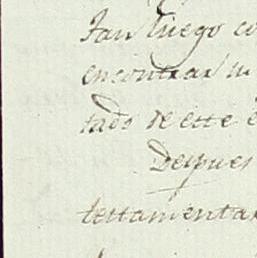 Tan luego co
encontrar
tado de este e
Despues
testamentar